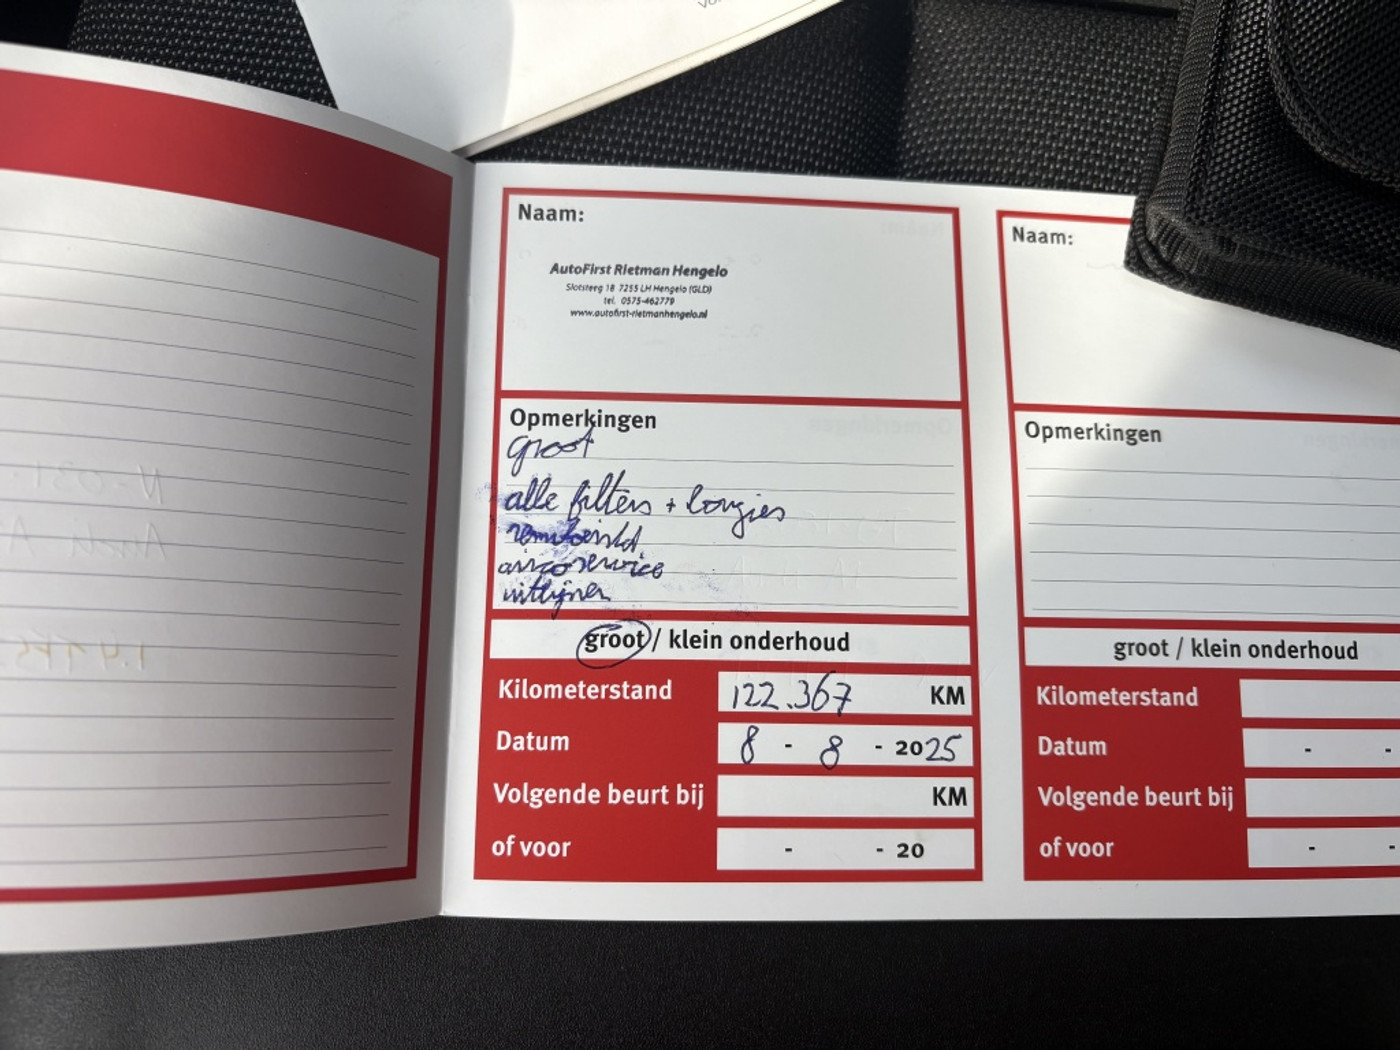 Naam:
AutoFirst Rietman Hengelo
Slotsteeg 18 7255 LH Hengelo (GLD)
tel. 0575-462779
www.autofirst-rietmanhengelo.nl
Opmerkingen
groot
alle filters + bougies
remvloeistof
aircoservice
uitlijnen
groot / klein onderhoud
Kilometerstand 122.367 KM
Datum 8 - 8 - 2025
Volgende beurt bij KM
of voor - - 20
Naam:
Opmerkingen
groot / klein onderhoud
Kilometerstand
Datum - -
Volgende beurt bij
of voor - -